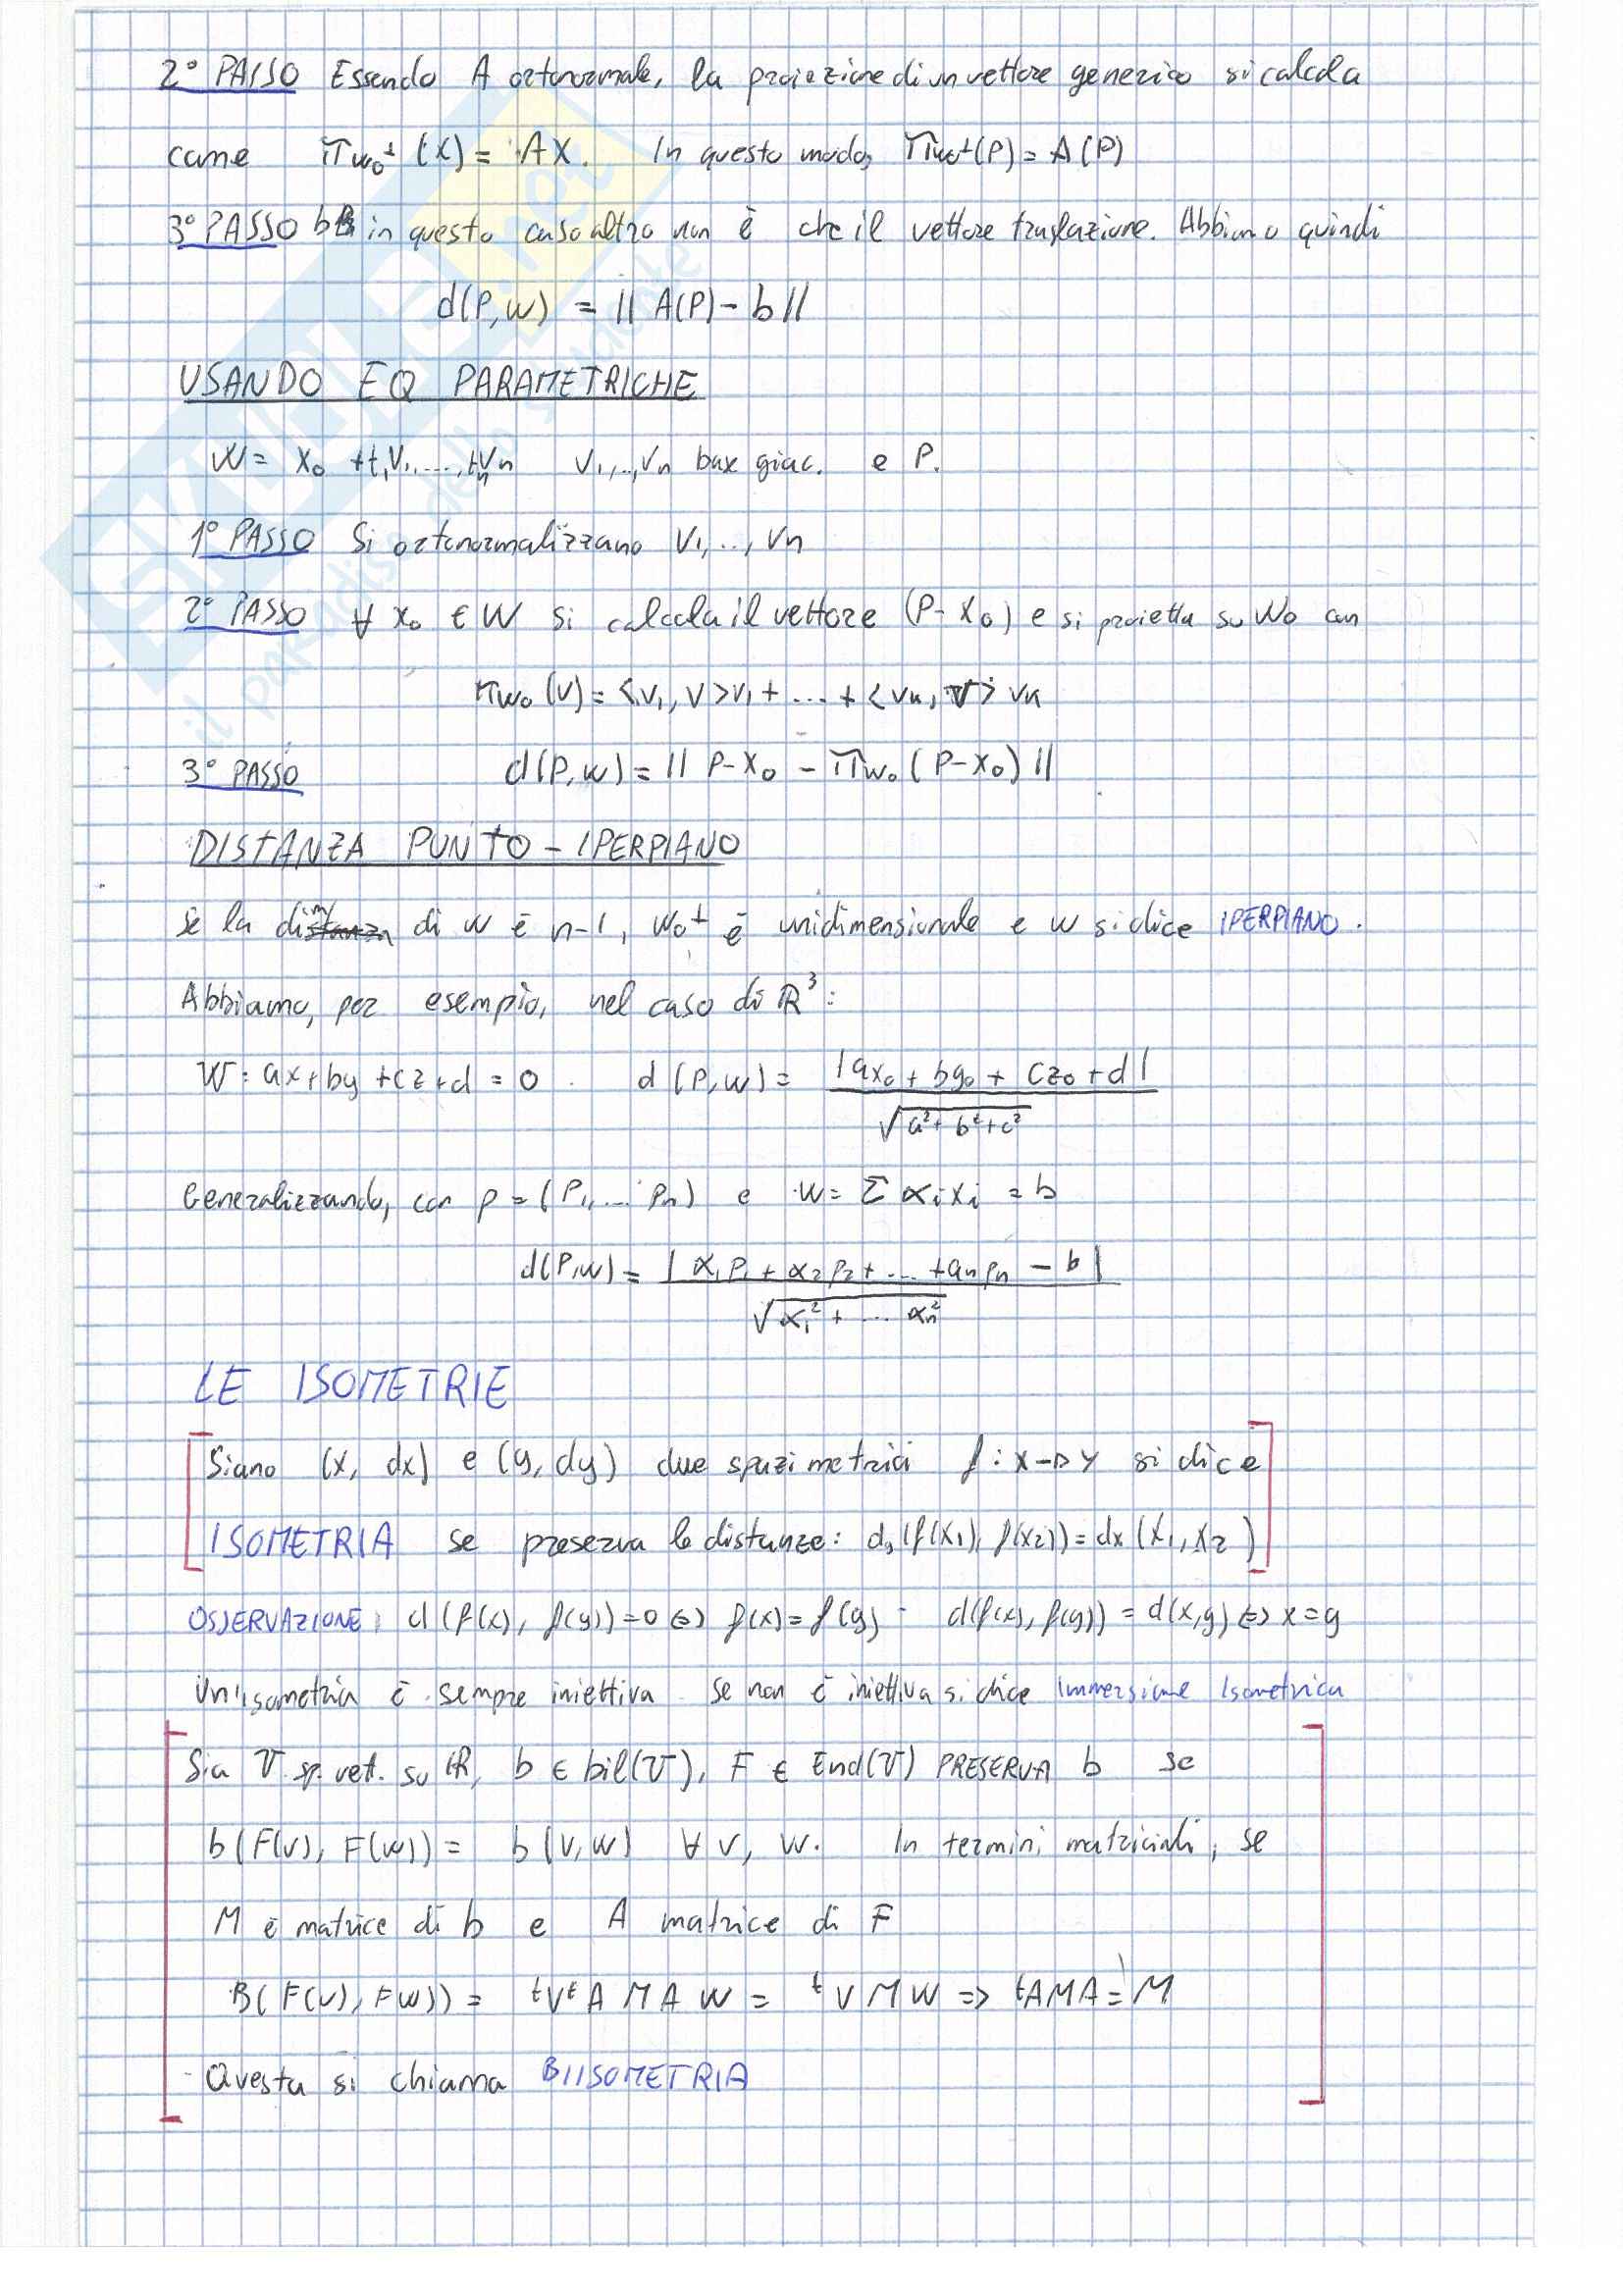 2° PASSO Essendo A ortonormale, la proiezione di un vettore generico si calcola
come πw₀⊥ (X) = AX. In questo modo, πw₀⊥(P) = A(P)
3° PASSO b in questo caso altro non è che il vettore traslazione. Abbiamo quindi
d(P,W) = || A(P) - b ||
USANDO EQ PARAMETRICHE
W = X₀ + t₁V₁,....,tₙVₙ V₁,..,Vₙ base giac. e P.
1° PASSO Si ortonormalizzano V₁,..,Vₙ
2° PASSO ∀ X₀ ∈ W si calcola il vettore (P-X₀) e si proietta su W₀ con
πw₀(V) = <V₁,V>V₁ + ... + <Vₙ,V>Vₙ
3° PASSO d(P,W) = || P-X₀ - πw₀(P-X₀) ||
DISTANZA PUNTO - IPERPIANO
Se la dim di W è n-1, W₀⊥ è unidimensionale e W si dice IPERPIANO.
Abbiamo, per esempio, nel caso di ℝ³:
W: ax+by+cz+d=0 d(P,W) = |ax₀+by₀+cz₀+d| / √(a²+b²+c²)
Generalizzando, con p=(P₁,....Pₙ) e W= Σ αᵢxᵢ = b
d(P,W) = |α₁p₁+α₂p₂+...+aₙpₙ - b| / √(α₁²+...αₙ²)
LE ISOMETRIE
Siano (X, dx) e (y, dy) due spazi metrici f: X→Y si dice
ISOMETRIA se preserva le distanze: dy(f(X₁), f(X₂)) = dx(X₁,X₂)
OSSERVAZIONE: d(f(x), f(y))=0 ⇔ f(x)=f(y) - d(f(x), f(y)) = d(x,y) ⇔ x=y
Un'isometria è sempre iniettiva se non è iniettiva si dice Immersione Isometrica
Sia V sp. vett. su ℝ, b ∈ bil(V), F ∈ End(V) PRESERVA b se
b(F(V), F(W)) = b(V,W) ∀ V, W. In termini matriciali, se
M è matrice di b e A matrice di F
B(F(V), F(W)) = ᵗVᵗA M A W = ᵗV M W ⇒ ᵗAMA = M
Questa si chiama BIISOMETRIA
SKUOLA.net
il paradiso dello studente